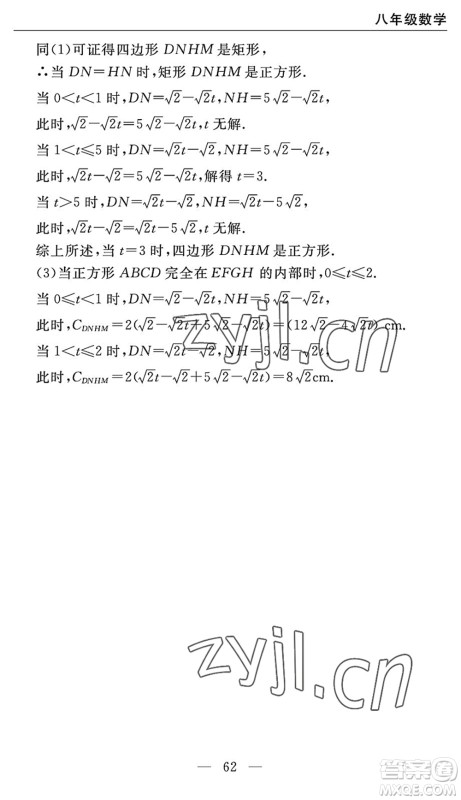 八年级数学
同(1)可证得四边形 DNHM 是矩形,
∴当 DN=HN 时,矩形 DNHM 是正方形.
当 0<t<1 时,DN=√2-√2t,NH=5√2-√2t.
此时,√2-√2t=5√2-√2t,t 无解.
当 1<t≤5 时,DN=√2t-√2,NH=5√2-√2t.
此时,√2t-√2=5√2-√2t,解得 t=3.
当 t>5 时,DN=√2t-√2,NH=√2t-5√2.
此时,√2t-√2=√2t-5√2,t 无解.
综上所述,当 t=3 时,四边形 DNHM 是正方形.
(3)当正方形 ABCD 完全在 EFGH 的内部时,0≤t≤2.
当 0≤t<1 时,DN=√2-√2t,NH=5√2-√2t.
此时,C_DNHM=2(√2-√2t+5√2-√2t)=(12√2-4√2t) cm.
当 1<t≤2 时,DN=√2t-√2,NH=5√2-√2t.
此时,C_DNHM=2(√2t-√2+5√2-√2t)=8√2cm.
zyjl.cn
zyjl.cn
— 62 —
答案圈
MXQE.COM